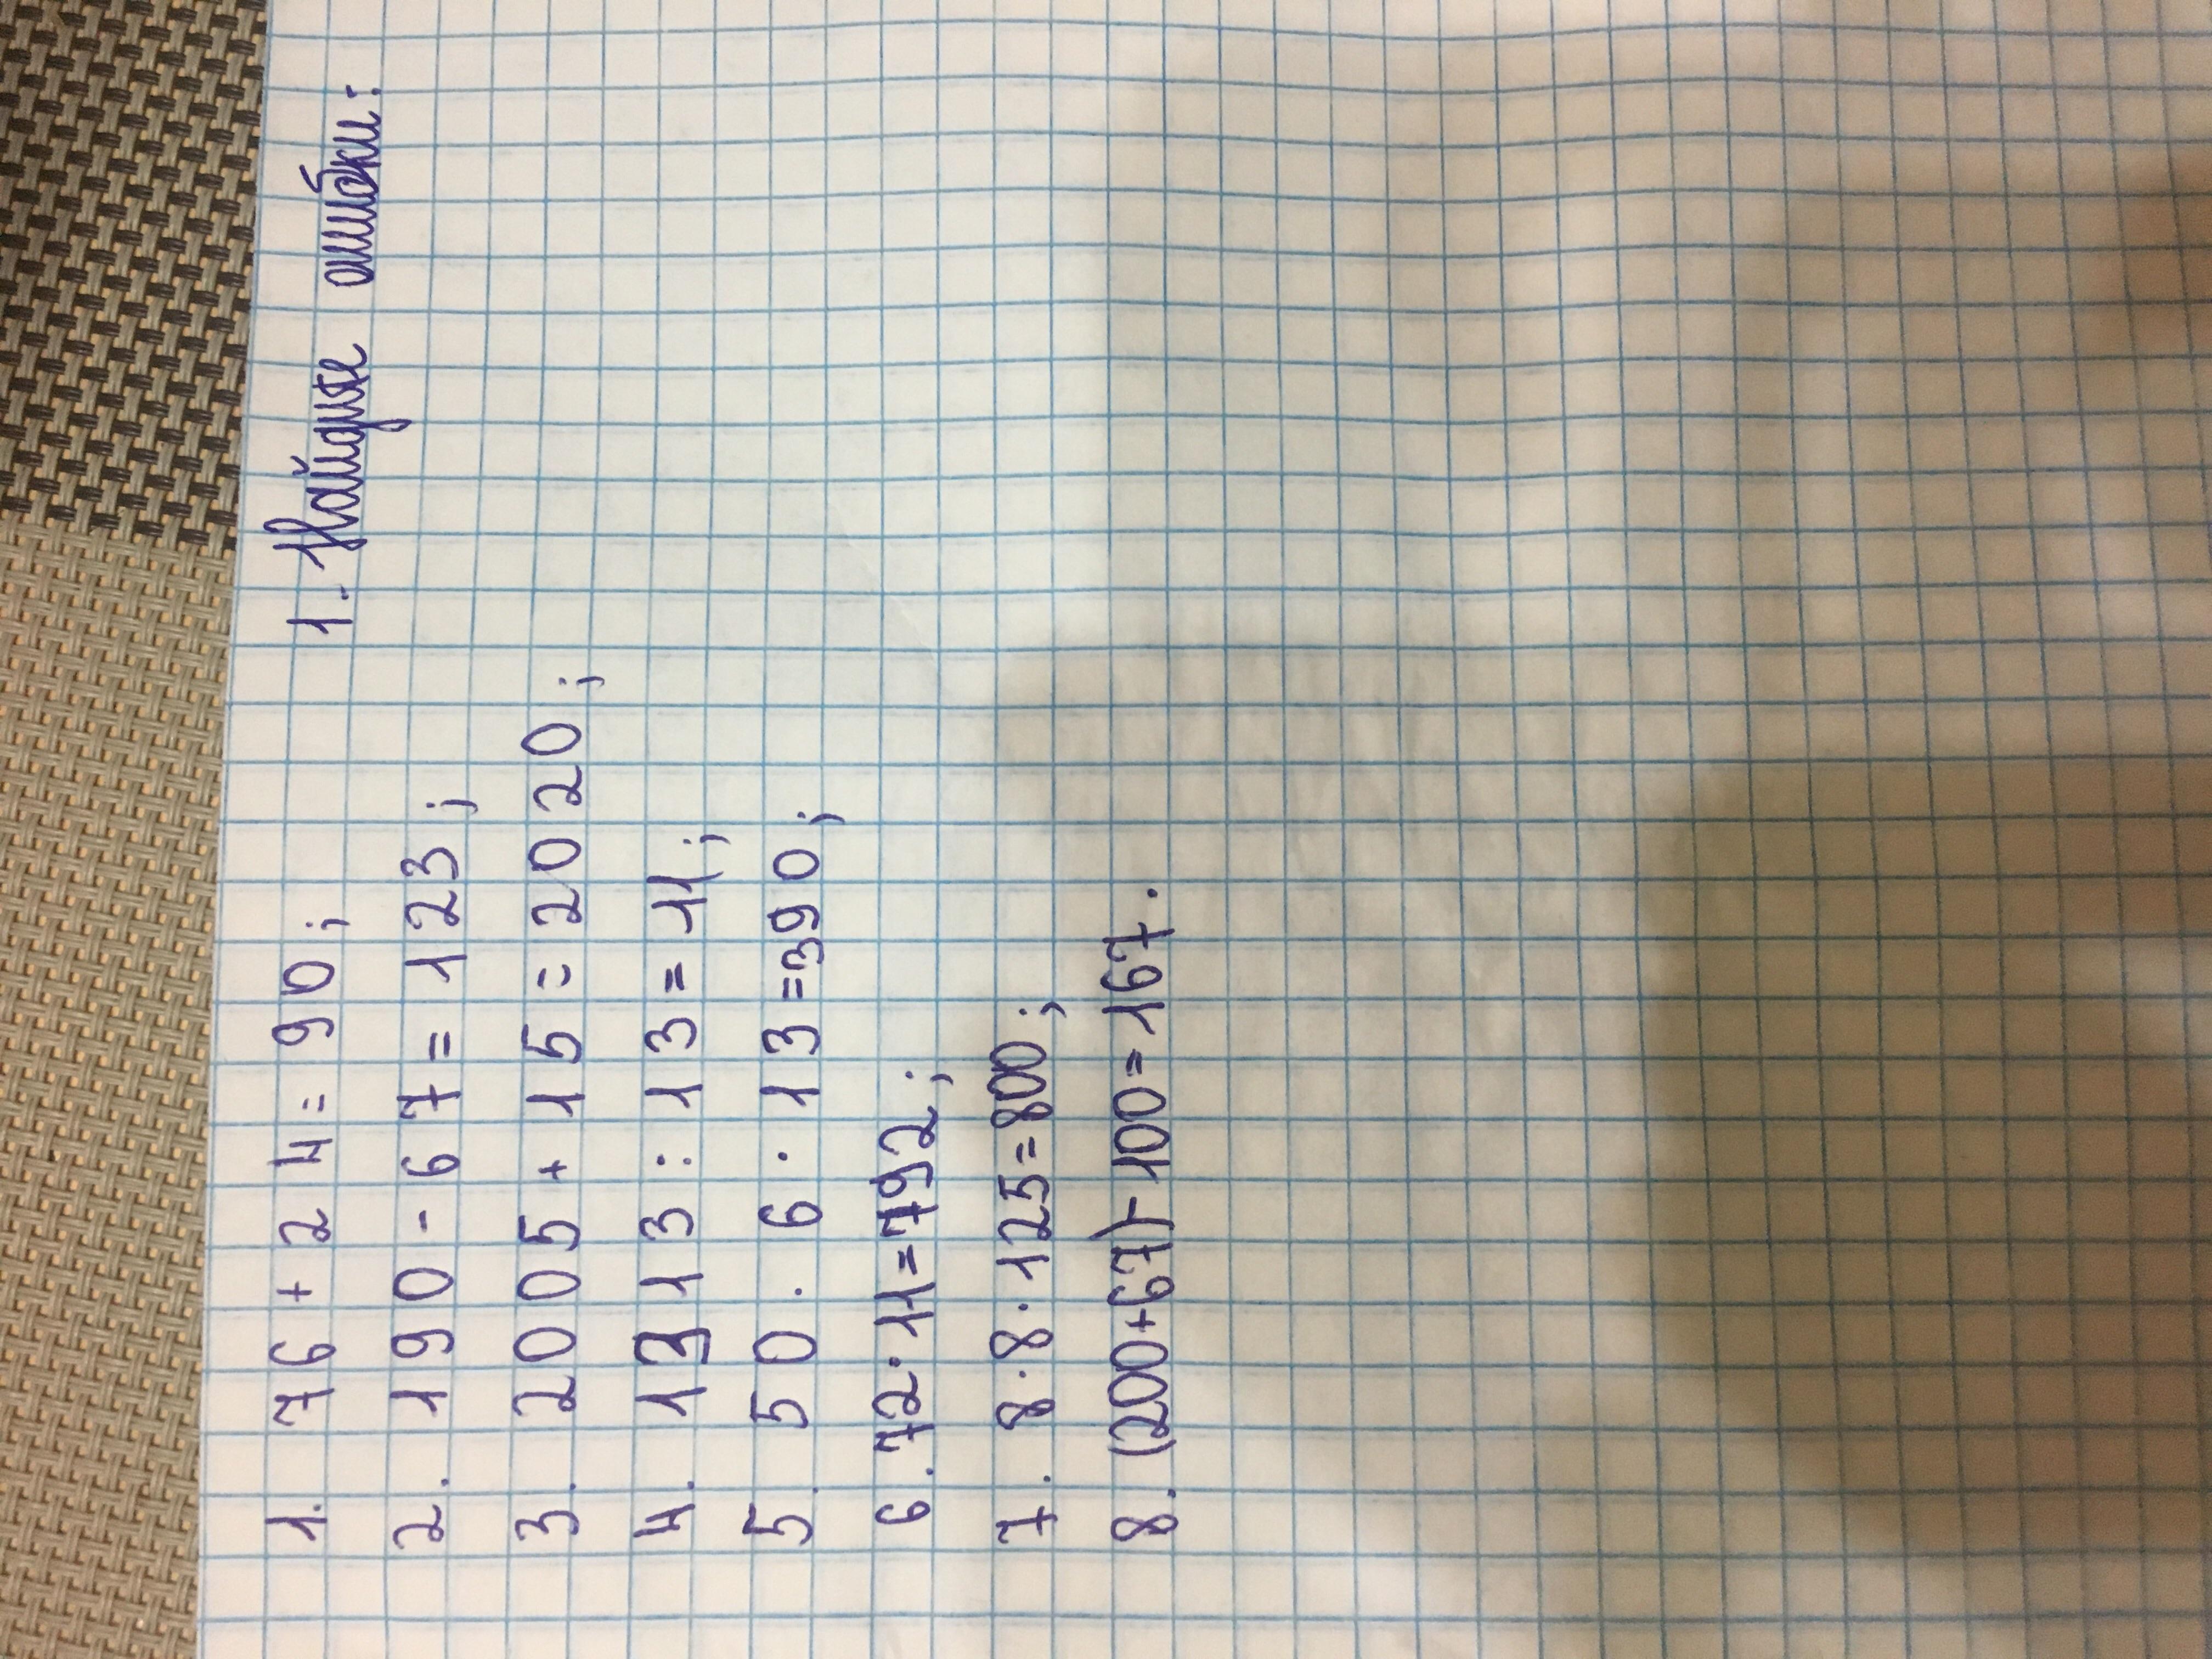 1. Найдите ошибки:
1. 76+24=90;
2. 190-67=123;
3. 2005+15=2020;
4. 1313:13=11;
5. 50·6·13=390;
6. 72·11=792;
7. 8·8·125=800;
8. (200+67)-100=167.